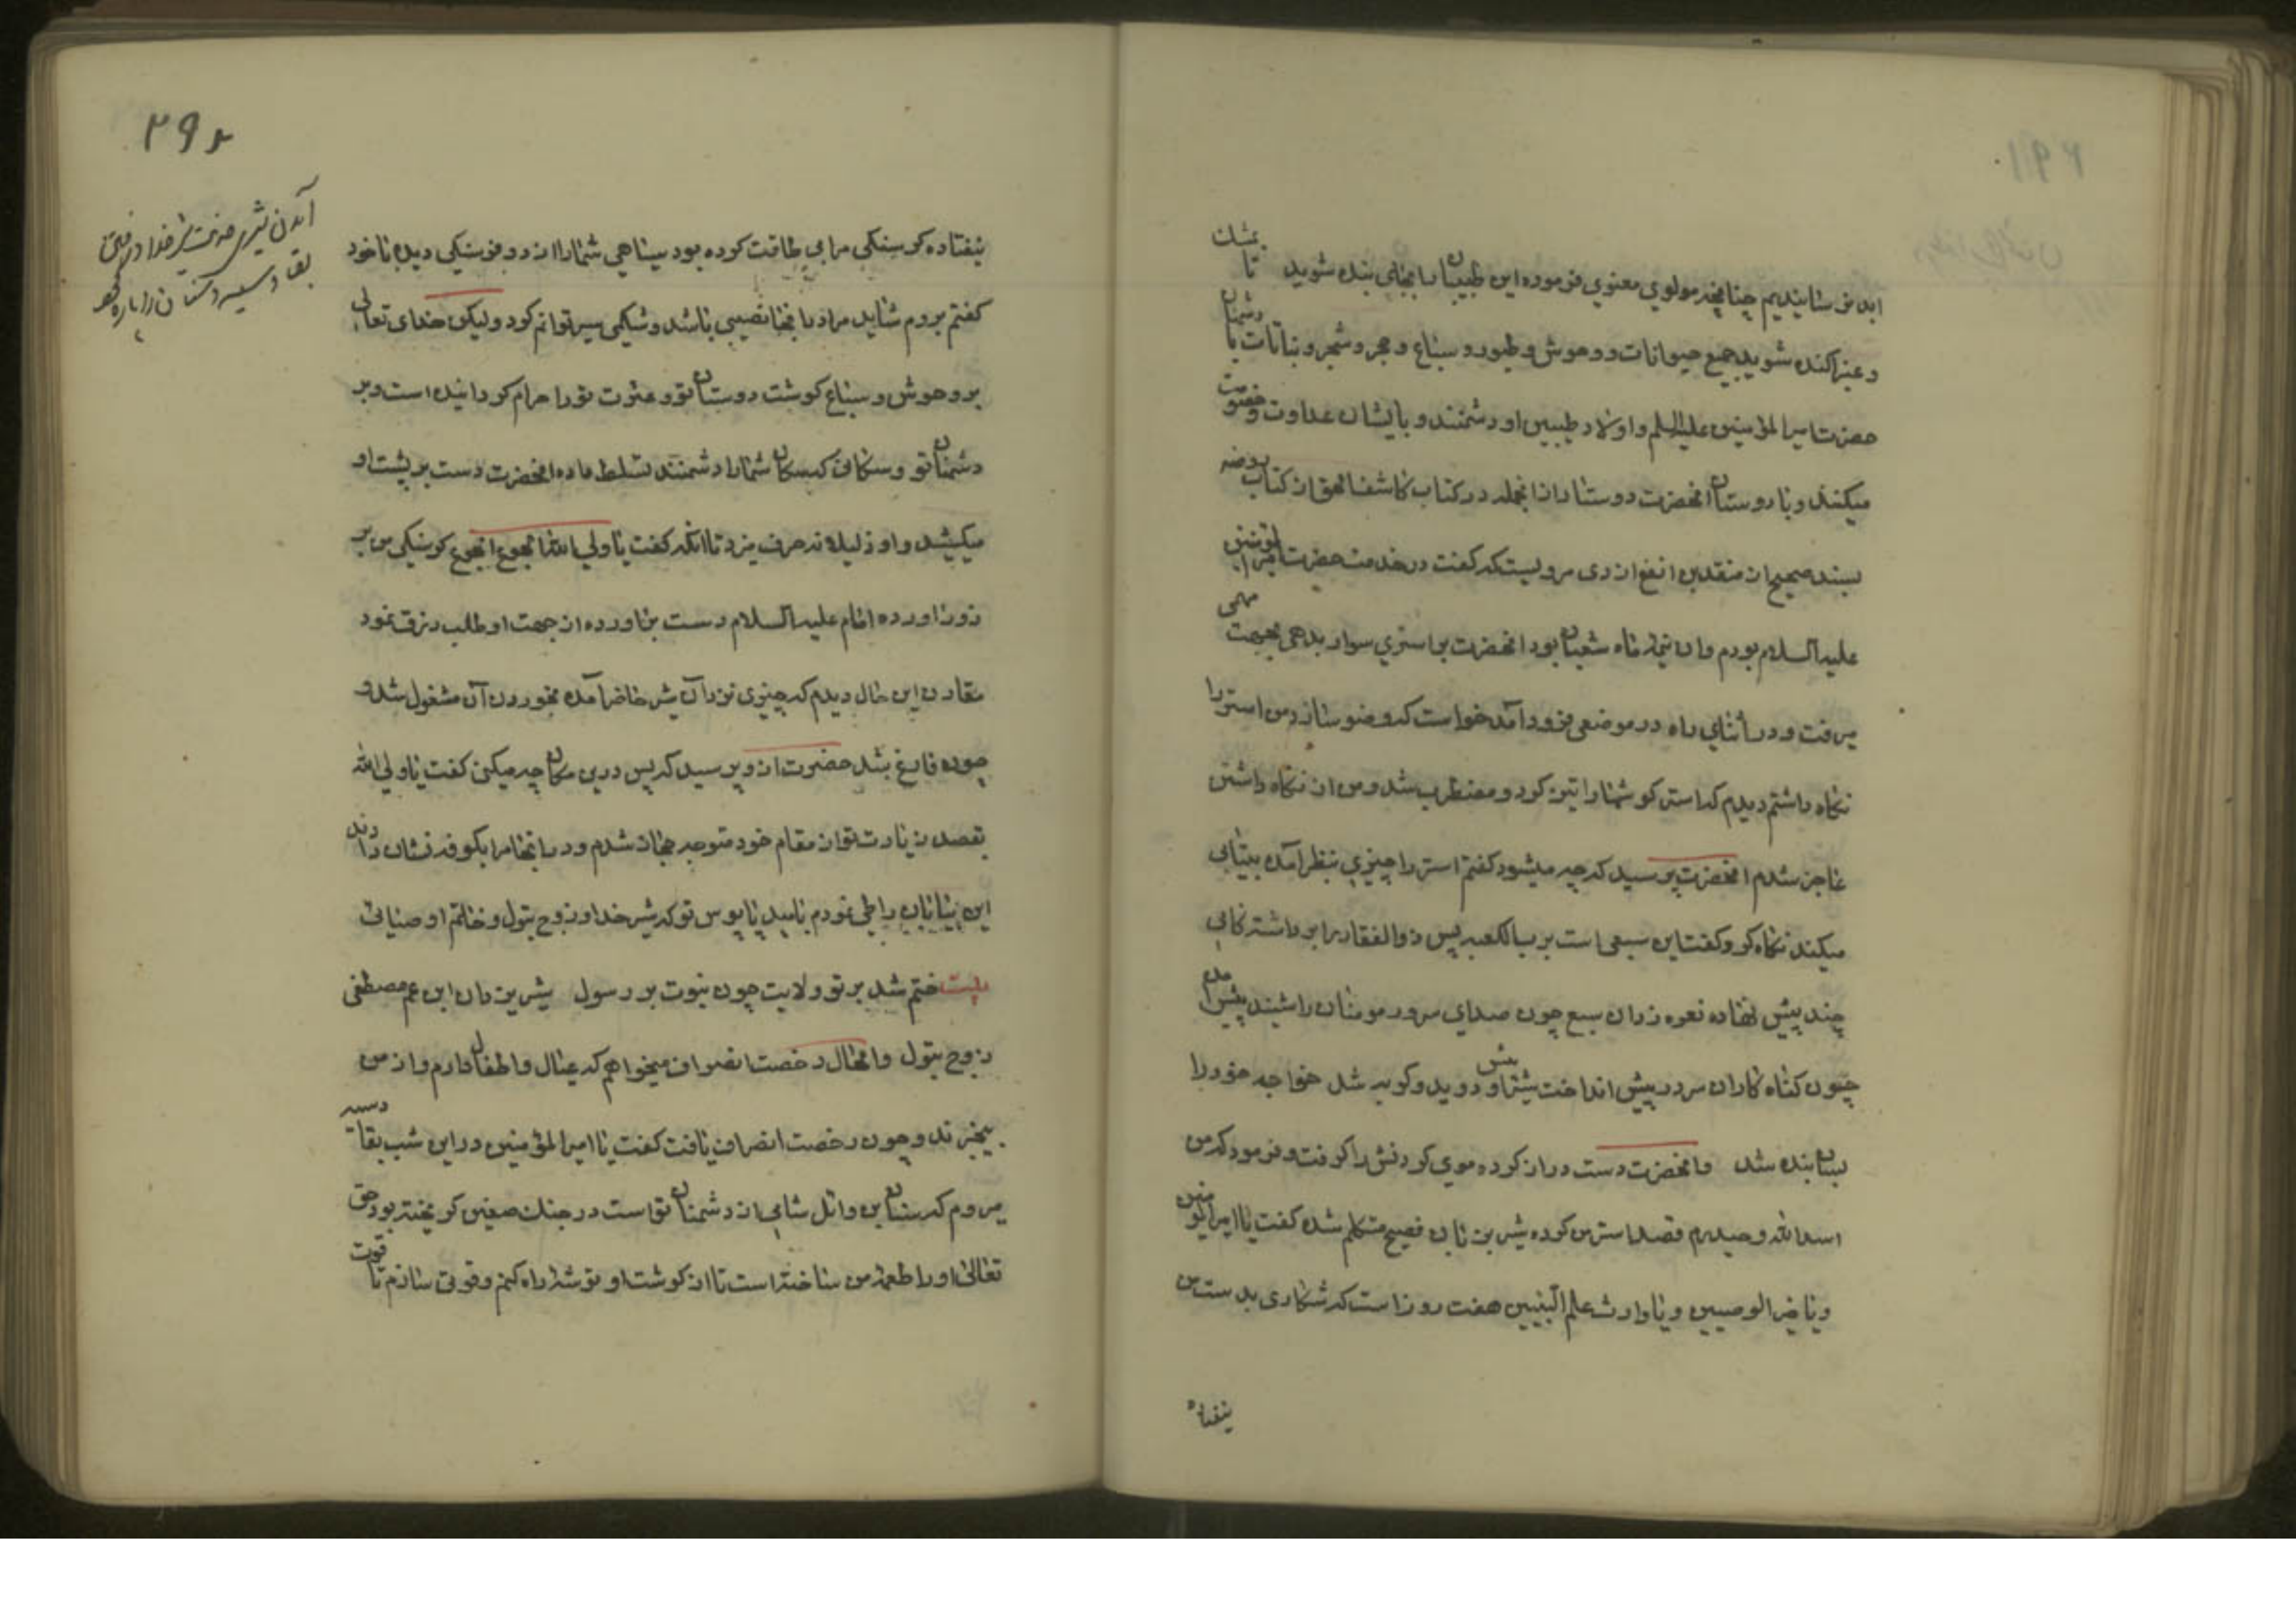 ابد نرسانیدیم چنانچه مولوی معنوی فرموده این طبیبان را بجان بنده شوید تا بمشک
و عنبر اکنده شوید جمیع حیوانات و وحوش و طیور و سباع و حجر و شجر و نباتات با دشمنان
حضرت امیر المؤمنین علیه السلم و اولاد طیبین او دشمنند و بایشان عداوت و خصومت
میکنند و با دوستان انحضرت دوستند ازانجمله در کتاب کاشف الحق از کتاب روضه
بسند صحیح از منقد بن ابقع ازدی مرویست که گفت در خدمت حضرت امیر المؤمنین
علیه السلام بودم وان نیمه ماه شعبان بود انحضرت بر استری سوار بدهی بجهت مهمی
میرفت و در اثنای راه در موضعی فرود آمد خواست که وضو سازد من استر را
نگاه داشتم دیدم که استر گوشها را تیز کرد و مضطرب شد و من از نگاه داشتن
عاجز شدم انحضرت پرسید که چه میشود گفتم استر را چیزی بنظر آمده بیتابی
میکند نگاه کرد و گفت این سبعی است برب الکعبه پس ذوالفقار را برداشته گامی
چند پیش نهاده نعره زد ان سبع چون صدای سرور مومنان را شنید پیش آمده
چون گناه کاران سر در پیش انداخت بیشتر او پیش دوید و گربه شد خواجه خود را
بسان بنده شد و انحضرت دست دراز کرده موی گردنش را گرفت و فرمود که من
اسد الله و حیدرم قصد استر من کرده شیر بزبان فصیح متکلم شده گفت یا امیر المؤمنین
و یا خیر الوصیین و یا وارث علم النبیین هفت روز است که شکاری بدست من
نیفتاده
۲۹۲
آمدن شیری خدمت شیر خدا و رفتن
بقادسیه و سنان را پاره کرد
نیفتاده گرسنگی مرا بی طاقت کرده بود سیاهی شما را از دو فرسنگی دیدم با خود
گفتم بروم شاید مرا در انجا نصیبی باشد و شکمی سیر توانم کرد و لیکن خدای تعالی
بر وحوش و سباع گوشت دوستان تو و عترت تو را حرام گردانیده است و بر
دشمنان تو و سگانی که بسگان شما را دشمنند تسلط داده انحضرت دست بر پشت او
میکشید و او ذلیلانه حرف میزد تا انکه گفت یا ولی الله الجوع الجوع گرسنگی من بر
زور اورده امام علیه السلام دست براورده از جهت او طلب رزق نمود
مقارن این حال دیدم که چیزی نزد آن شیر حاضر آمده بخوردن آن مشغول شد و
چون فارغ شد حضرت از و پرسید که پس درین مکان چه میکنی گفت یا ولی الله
بقصد زیارت تو از مقام خود متوجه حجاز شدم و در انجا مرا بکوفه نشان دادند
این بیابان را طی نمودم بامید پابوس تو که شیر خدا و زوج بتول و خاتم اوصیائی
بیت ختم شد بر تو ولایت چون نبوت بر رسول شیر یزدان ابن عم مصطفی
زوج بتول و الحال رخصت انصراف میخواهم که عیال و اطفال دارم و از من
بیخبرند و چون رخصت انصراف یافت گفت یا امیر المؤمنین در این شب بقادسیه
میروم که سنان بن وائل شامی از دشمنان تو است در جنگ صفین گریخته بود حق
تعالی او را طعمه من ساخته است تا از گوشت او توشه راه کنم و قوتی سازم تا قوت